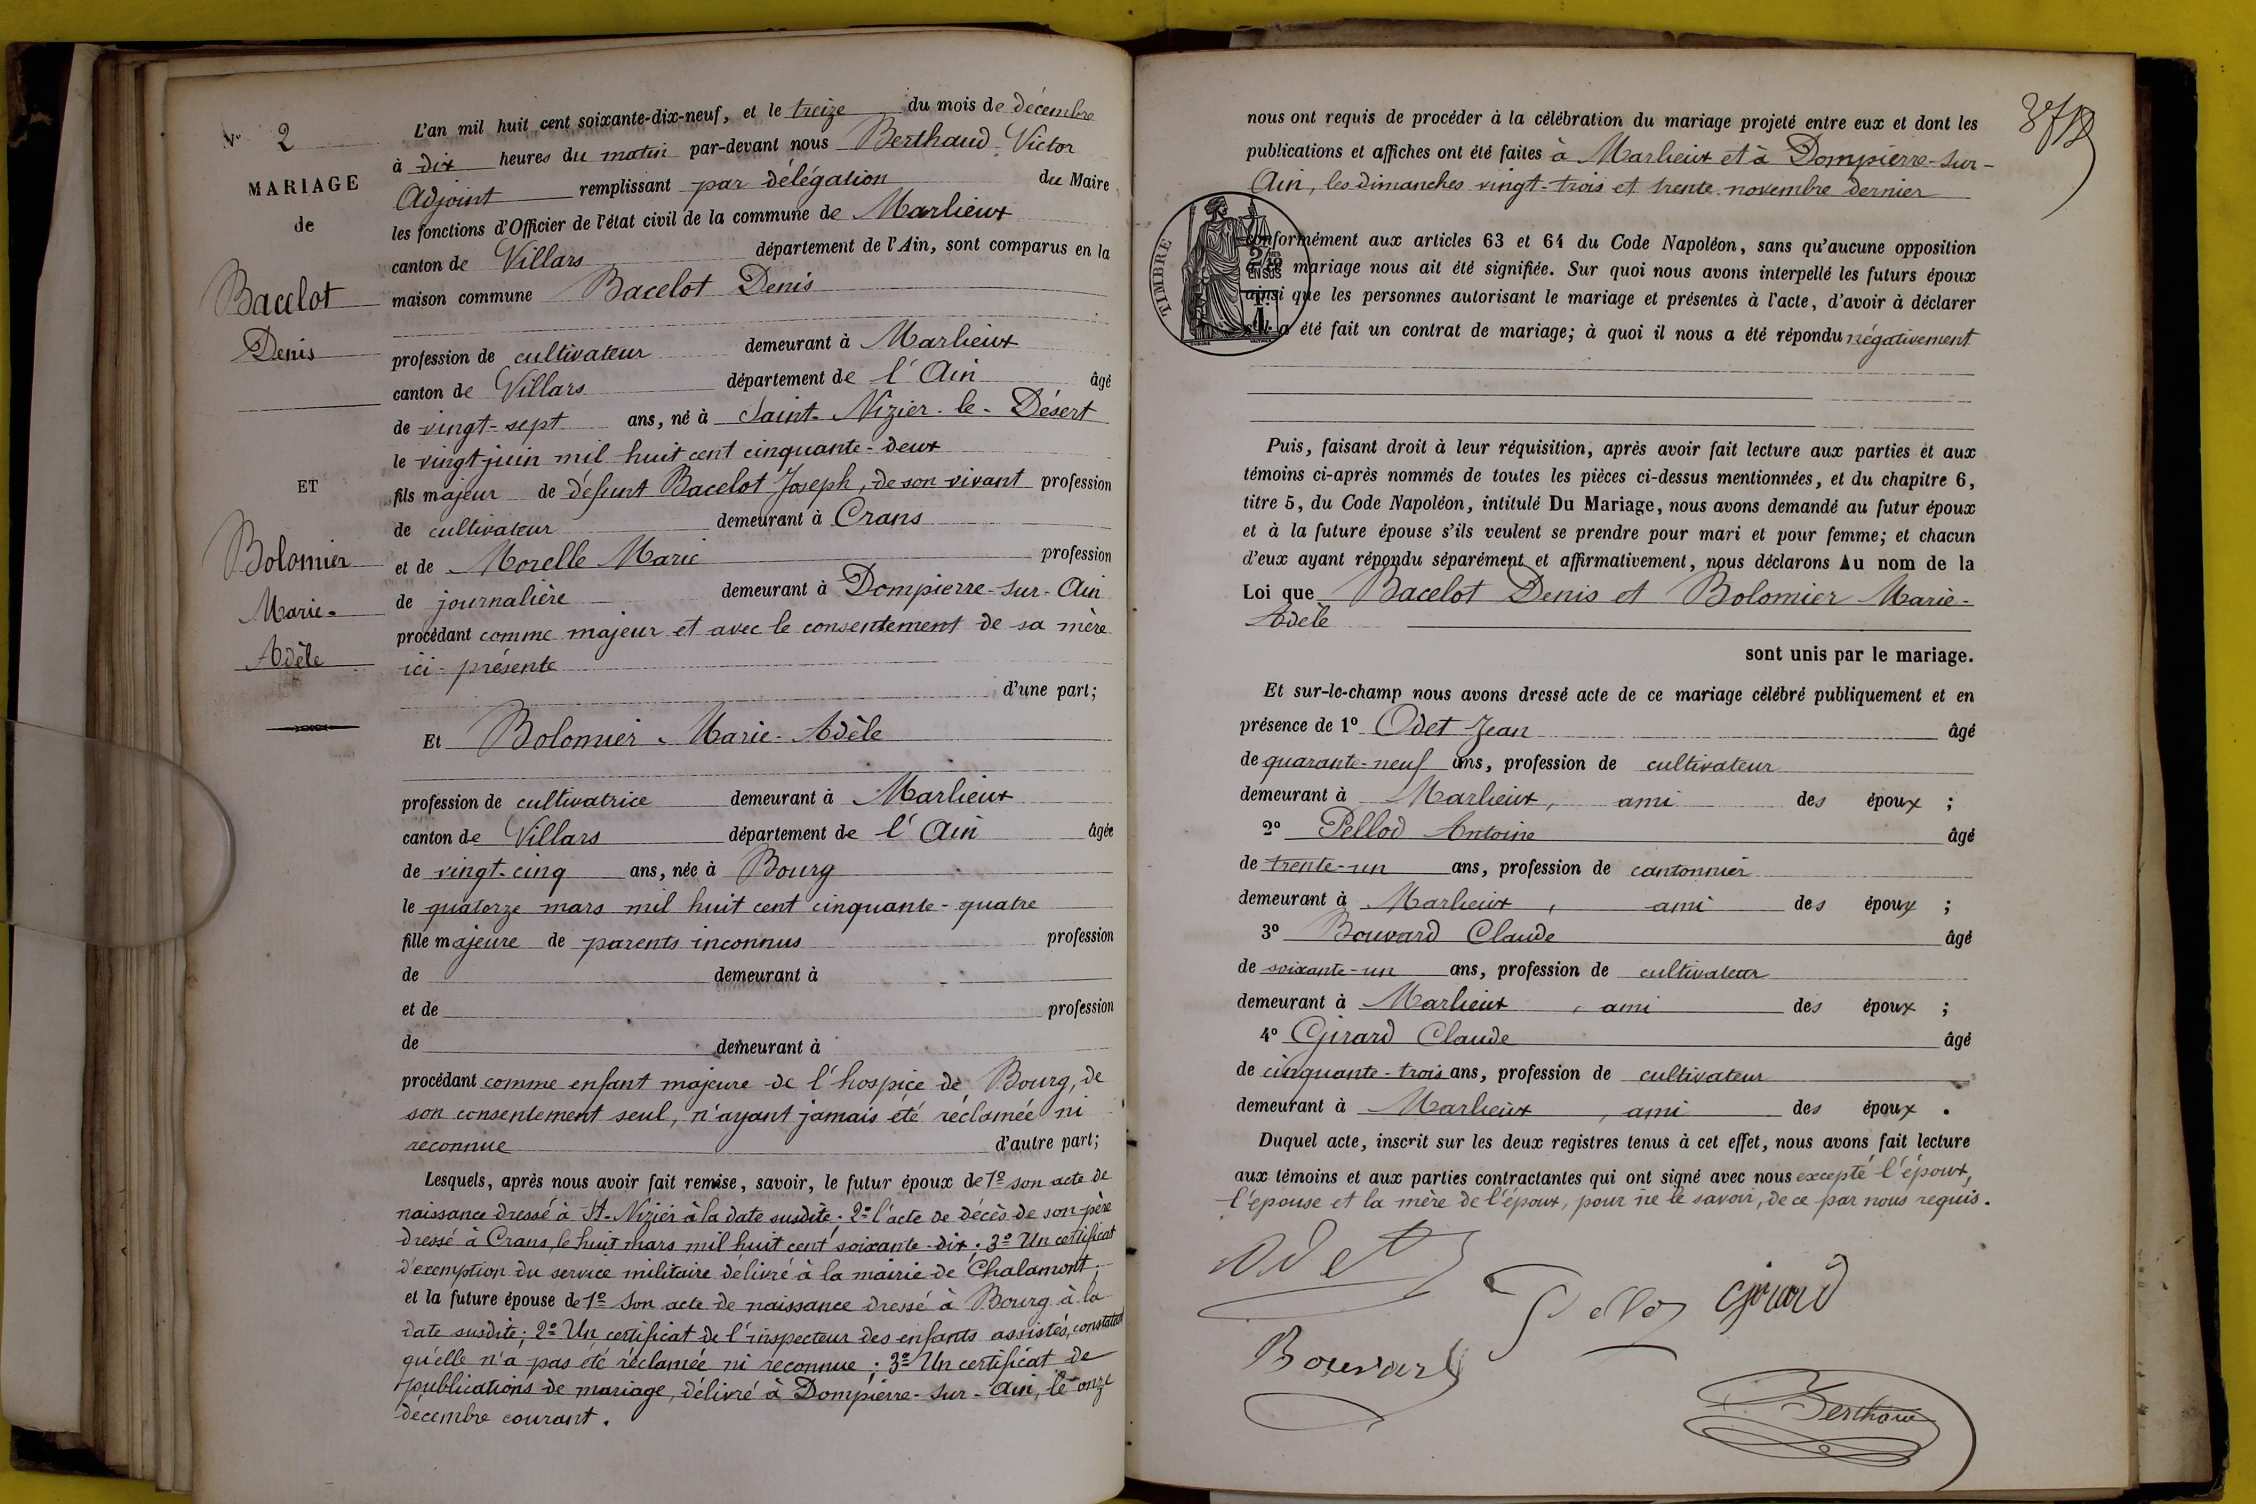 N° 2
MARIAGE
de
Bacelot
Denis
ET
Bolomier
Marie-
Adèle
L'an mil huit cent soixante-dix-neuf, et le treize du mois de décembre
à dix heures du matin par-devant nous Berthaud Victor
Adjoint remplissant par délégation du Maire
les fonctions d'Officier de l'état civil de la commune de Marlieux
canton de Villars département de l'Ain, sont comparus en la
maison commune Bacelot Denis
profession de cultivateur demeurant à Marlieux
canton de Villars département de l'Ain âgé
de vingt-sept ans, né à Saint-Nizier-le-Désert
le vingt juin mil huit cent cinquante-deux
fils majeur de défunt Bacelot Joseph, de son vivant profession
de cultivateur demeurant à Crans
et de Morelle Marie profession
de journalière demeurant à Dompierre-sur-Ain
procédant comme majeur et avec le consentement de sa mère
ici-présente
d'une part;
Et Bolomier Marie-Adèle
profession de cultivatrice demeurant à Marlieux
canton de Villars département de l'Ain âgée
de vingt-cinq ans, née à Bourg
le quatorze mars mil huit cent cinquante-quatre
fille majeure de parents inconnus profession
de demeurant à
et de profession
de demeurant à
procédant comme enfant majeure de l'hospice de Bourg, de
son consentement seul, n'ayant jamais été réclamée ni
reconnue d'autre part;
Lesquels, après nous avoir fait remise, savoir, le futur époux de 1° son acte de
naissance dressé à St-Nizier à la date susdite; 2° l'acte de décès de son père
dressé à Crans, le huit mars mil huit cent soixante-dix; 3° Un certificat
d'exemption du service militaire délivré à la mairie de Chalamont;
et la future épouse de 1° Son acte de naissance dressé à Bourg à la
date susdite; 2° Un certificat de l'inspecteur des enfants assistés, constatant
qu'elle n'a pas été réclamée ni reconnue; 3° Un certificat de
publications de mariage, délivré à Dompierre-sur-Ain, le onze
décembre courant.
nous ont requis de procéder à la célébration du mariage projeté entre eux et dont les
publications et affiches ont été faites à Marlieux et à Dompierre-sur-
Ain, les dimanches vingt-trois et trente novembre dernier
TIMBRE
2/10
EN SUS
conformément aux articles 63 et 64 du Code Napoléon, sans qu'aucune opposition
mariage nous ait été signifiée. Sur quoi nous avons interpellé les futurs époux
ainsi que les personnes autorisant le mariage et présentes à l'acte, d'avoir à déclarer
s'il a été fait un contrat de mariage; à quoi il nous a été répondu négativement
Puis, faisant droit à leur réquisition, après avoir fait lecture aux parties et aux
témoins ci-après nommés de toutes les pièces ci-dessus mentionnées, et du chapitre 6,
titre 5, du Code Napoléon, intitulé Du Mariage, nous avons demandé au futur époux
et à la future épouse s'ils veulent se prendre pour mari et pour femme; et chacun
d'eux ayant répondu séparément et affirmativement, nous déclarons Au nom de la
Loi que Bacelot Denis et Bolomier Marie-
Adèle
sont unis par le mariage.
Et sur-le-champ nous avons dressé acte de ce mariage célébré publiquement et en
présence de 1° Odet Jean âgé
de quarante-neuf ans, profession de cultivateur
demeurant à Marlieux, ami des époux ;
2° Pellod Antoine âgé
de trente-un ans, profession de cantonnier
demeurant à Marlieux, ami des époux ;
3° Bouvard Claude âgé
de soixante-un ans, profession de cultivateur
demeurant à Marlieux, ami des époux ;
4° Girard Claude âgé
de cinquante-trois ans, profession de cultivateur
demeurant à Marlieux, ami des époux .
Duquel acte, inscrit sur les deux registres tenus à cet effet, nous avons fait lecture
aux témoins et aux parties contractantes qui ont signé avec nous excepté l'époux,
l'épouse et la mère de l'époux, pour ne le savoir, de ce par nous requis.
Odet
Pellod Girard
Bouvard
Berthaud